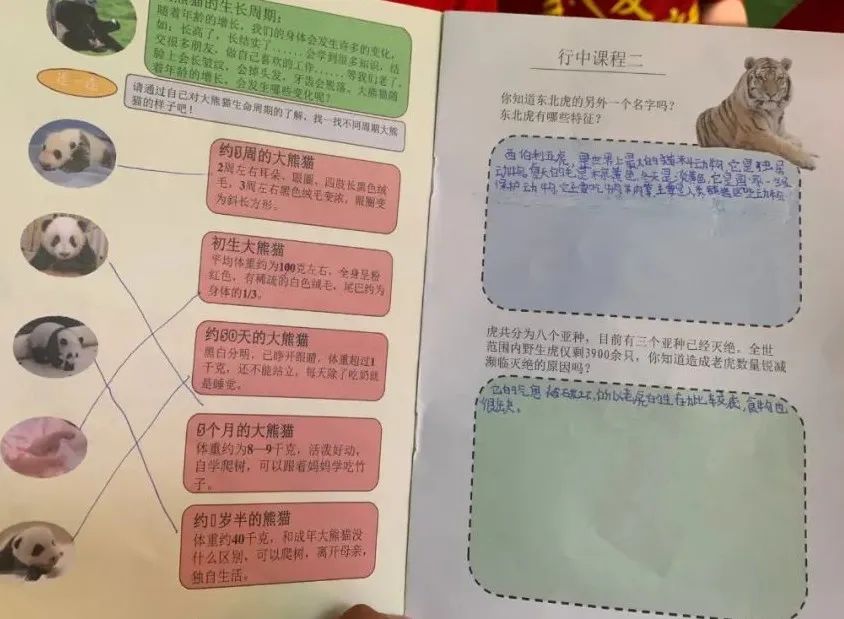 熊猫的生长周期：
随着年龄的增长，我们的身体会发生许多的变化，
如：长高了，长结实了……会学到很多知识，结
交很多朋友，做自己喜欢的工作……等我们老了，
脸上会长皱纹，会掉头发，牙齿会脱落，大熊猫随
着年龄的增长，会发生哪些变化呢？
连一连
请通过自己对大熊猫生命周期的了解，找一找不同周期大熊
猫的样子吧！
周的大熊猫
2周左右耳朵、眼圈、四肢长黑色绒
毛，3周左右黑色绒毛变浓，眼圈变
为斜长方形。
初生大熊猫
平均体重约为100克左右，全身呈粉
红色，有稀疏的白色绒毛，尾巴约为
身体的1/3。
天的大熊猫
黑白分明，已睁开眼睛，体重超过1
千克，还不能站立，每天除了吃奶就
是睡觉。
个月的大熊猫
体重约为8—9千克，活泼好动，
自学爬树，可以跟着妈妈学吃竹
子。
岁半的熊猫
体重约40千克，和成年大熊猫没
什么区别，可以爬树，离开母亲，
独自生活。
行中课程二
你知道东北虎的另外一个名字吗？
东北虎有哪些特征？
西伯利亚虎，是世界上最大的猫科动物，它是独居
动物，夏天的毛是棕黄色，冬天是淡黄色，它是国家一级
保护动物，它主要吃
虎共分为八个亚种，目前有三个亚种已经灭绝，全世
范围内野生虎仅剩3900余只，你知道造成老虎数量锐减
濒临灭绝的原因吗？
老虎的生存 食物也
很缺。